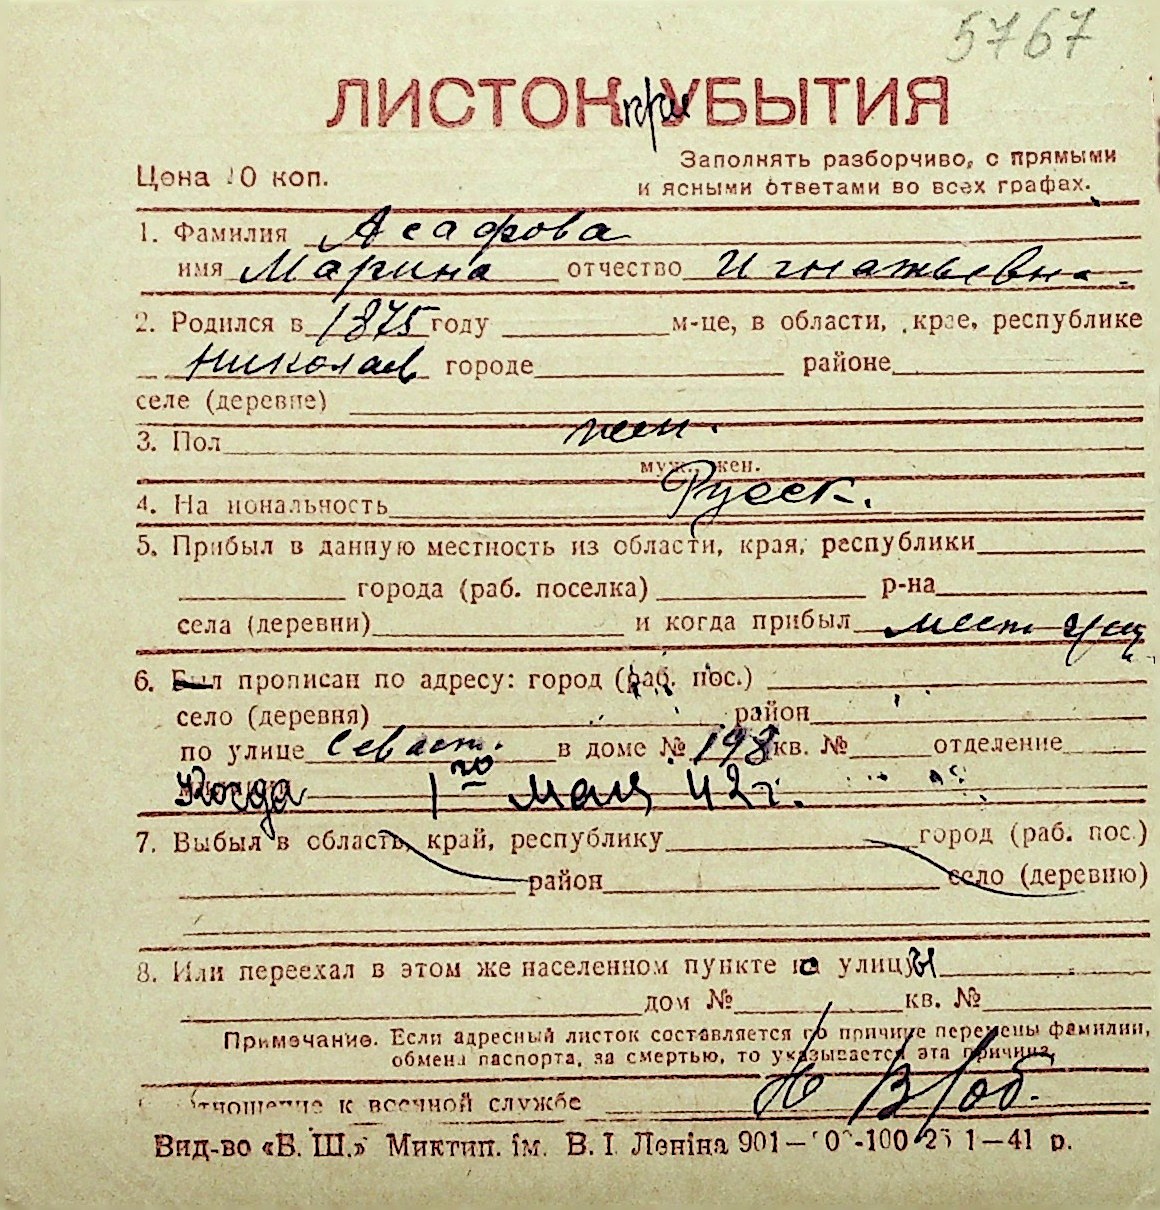 5767
ЛИСТОК при УБЫТИЯ
Цена 10 коп.
Заполнять разборчиво, с прямыми
и ясными ответами во всех графах.
1. Фамилия Асафова
имя Марина отчество Игнатьевна
2. Родился в 1875 году м-це, в области, крае, республике
Николаев городе районе
селе (деревне)
3. Пол жен.
муж., жен.
4. На иональность Русск.
5. Прибыл в данную местность из области, края, республики
города (раб. поселка) р-на
села (деревни) и когда прибыл мест.
6. Был прописан по адресу: город (раб. пос.)
село (деревня) район
по улице Севаст. в доме № 198 кв. № отделение
Когда 1го мая 42 г.
7. Выбыл в область, край, республику город (раб. пос.)
район село (деревню)
8. Или переехал в этом же населенном пункте с улицы
дом № кв. №
Примечание. Если адресный листок составляется по причине перемены фамилии,
обмена паспорта, за смертью, то указывается эта причина.
тношение к военной службе
Вид-во «Б. Ш.» Миктип. ім. В. І. Леніна 901— 0 -100 25 1—41 р.